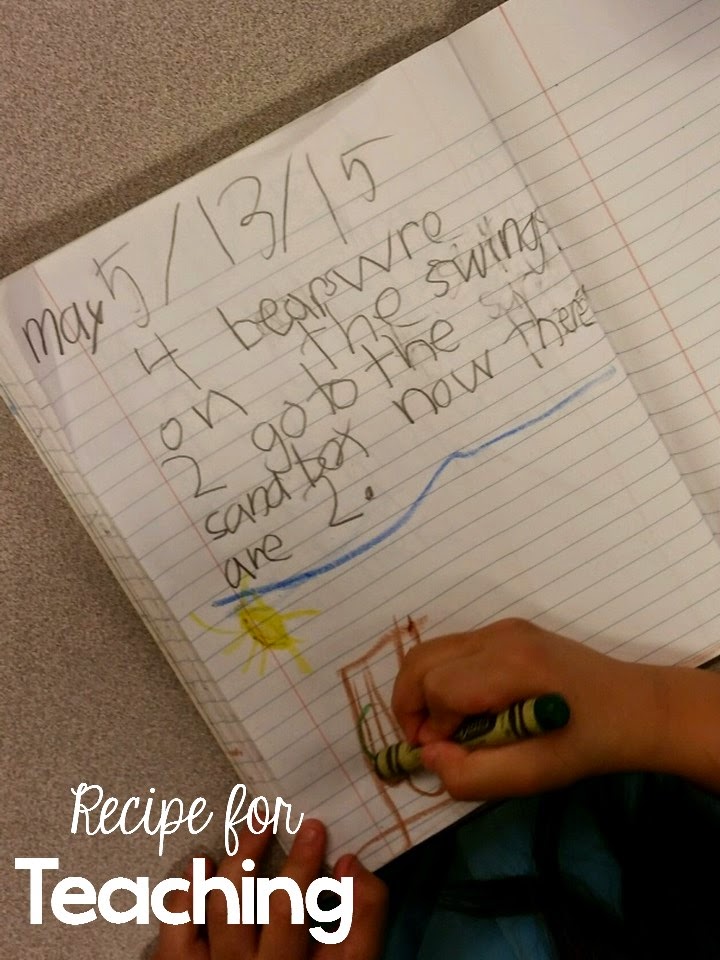 5/13/15
max
4 bears wre
on the swings
2 go to the
sandbox now there
are 2.
Recipe for
Teaching